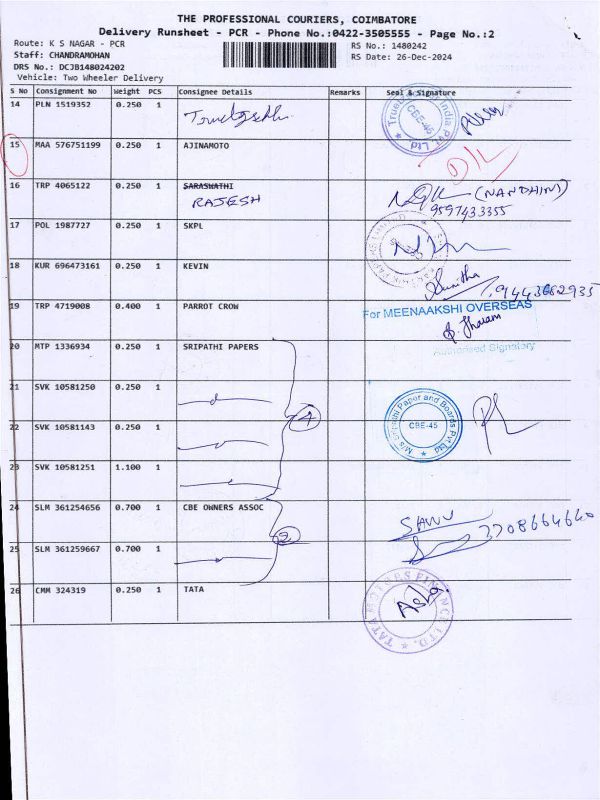 THE PROFESSIONAL COURIERS, COIMBATORE
Delivery Runsheet - PCR - Phone No.:0422-3505555 - Page No.:2
Route: K S NAGAR - PCR
RS No.: 1480242
Staff: CHANDRAMOHAN
RS Date: 26-Dec-2024
DRS No.: DCJB148024202
Vehicle: Two Wheeler Delivery
S No Consignment No Weight PCS Consignee Details Remarks Seal & Signature
14 PLN 1519352 0.250 1
CBE-45
15 MAA 576751199 0.250 1 AJINAMOTO
16 TRP 4065122 0.250 1 SARASWATHI
RAJESH
(NANDHINI)
9597433355
17 POL 1987727 0.250 1 SKPL
18 KUR 696473161 0.250 1 KEVIN
Sunitha
19 TRP 4719008 0.400 1 PARROT CROW
For MEENAAKSHI OVERSEAS
Authorised Signatory
20 MTP 1336934 0.250 1 SRIPATHI PAPERS
21 SVK 10581250 0.250 1
4
M/s Sripathi Paper and Boards Pvt Ltd
CBE-45
22 SVK 10581143 0.250 1
23 SVK 10581251 1.100 1
24 SLM 361254656 0.700 1 CBE OWNERS ASSOC
2
25 SLM 361259667 0.700 1
26 CMM 324319 0.250 1 TATA
TATA MOTORS FINANCE LTD.